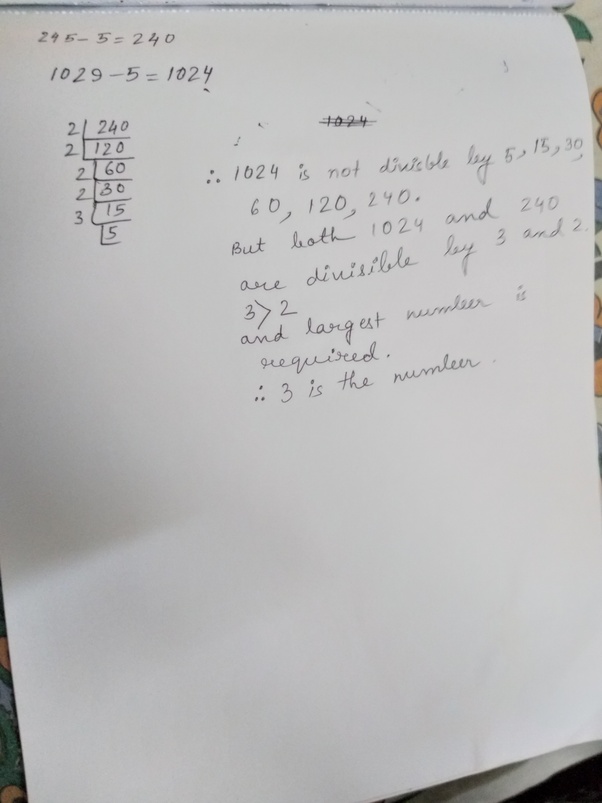 245-5=240
1029-5=1024
1024
2 240
2 120
2 60
2 30
3 15
5
∴ 1024 is not divisble by 5, 15, 30,
60, 120, 240.
But both 1024 and 240
are divisible by 3 and 2.
3>2
and largest number is
required.
∴ 3 is the number.